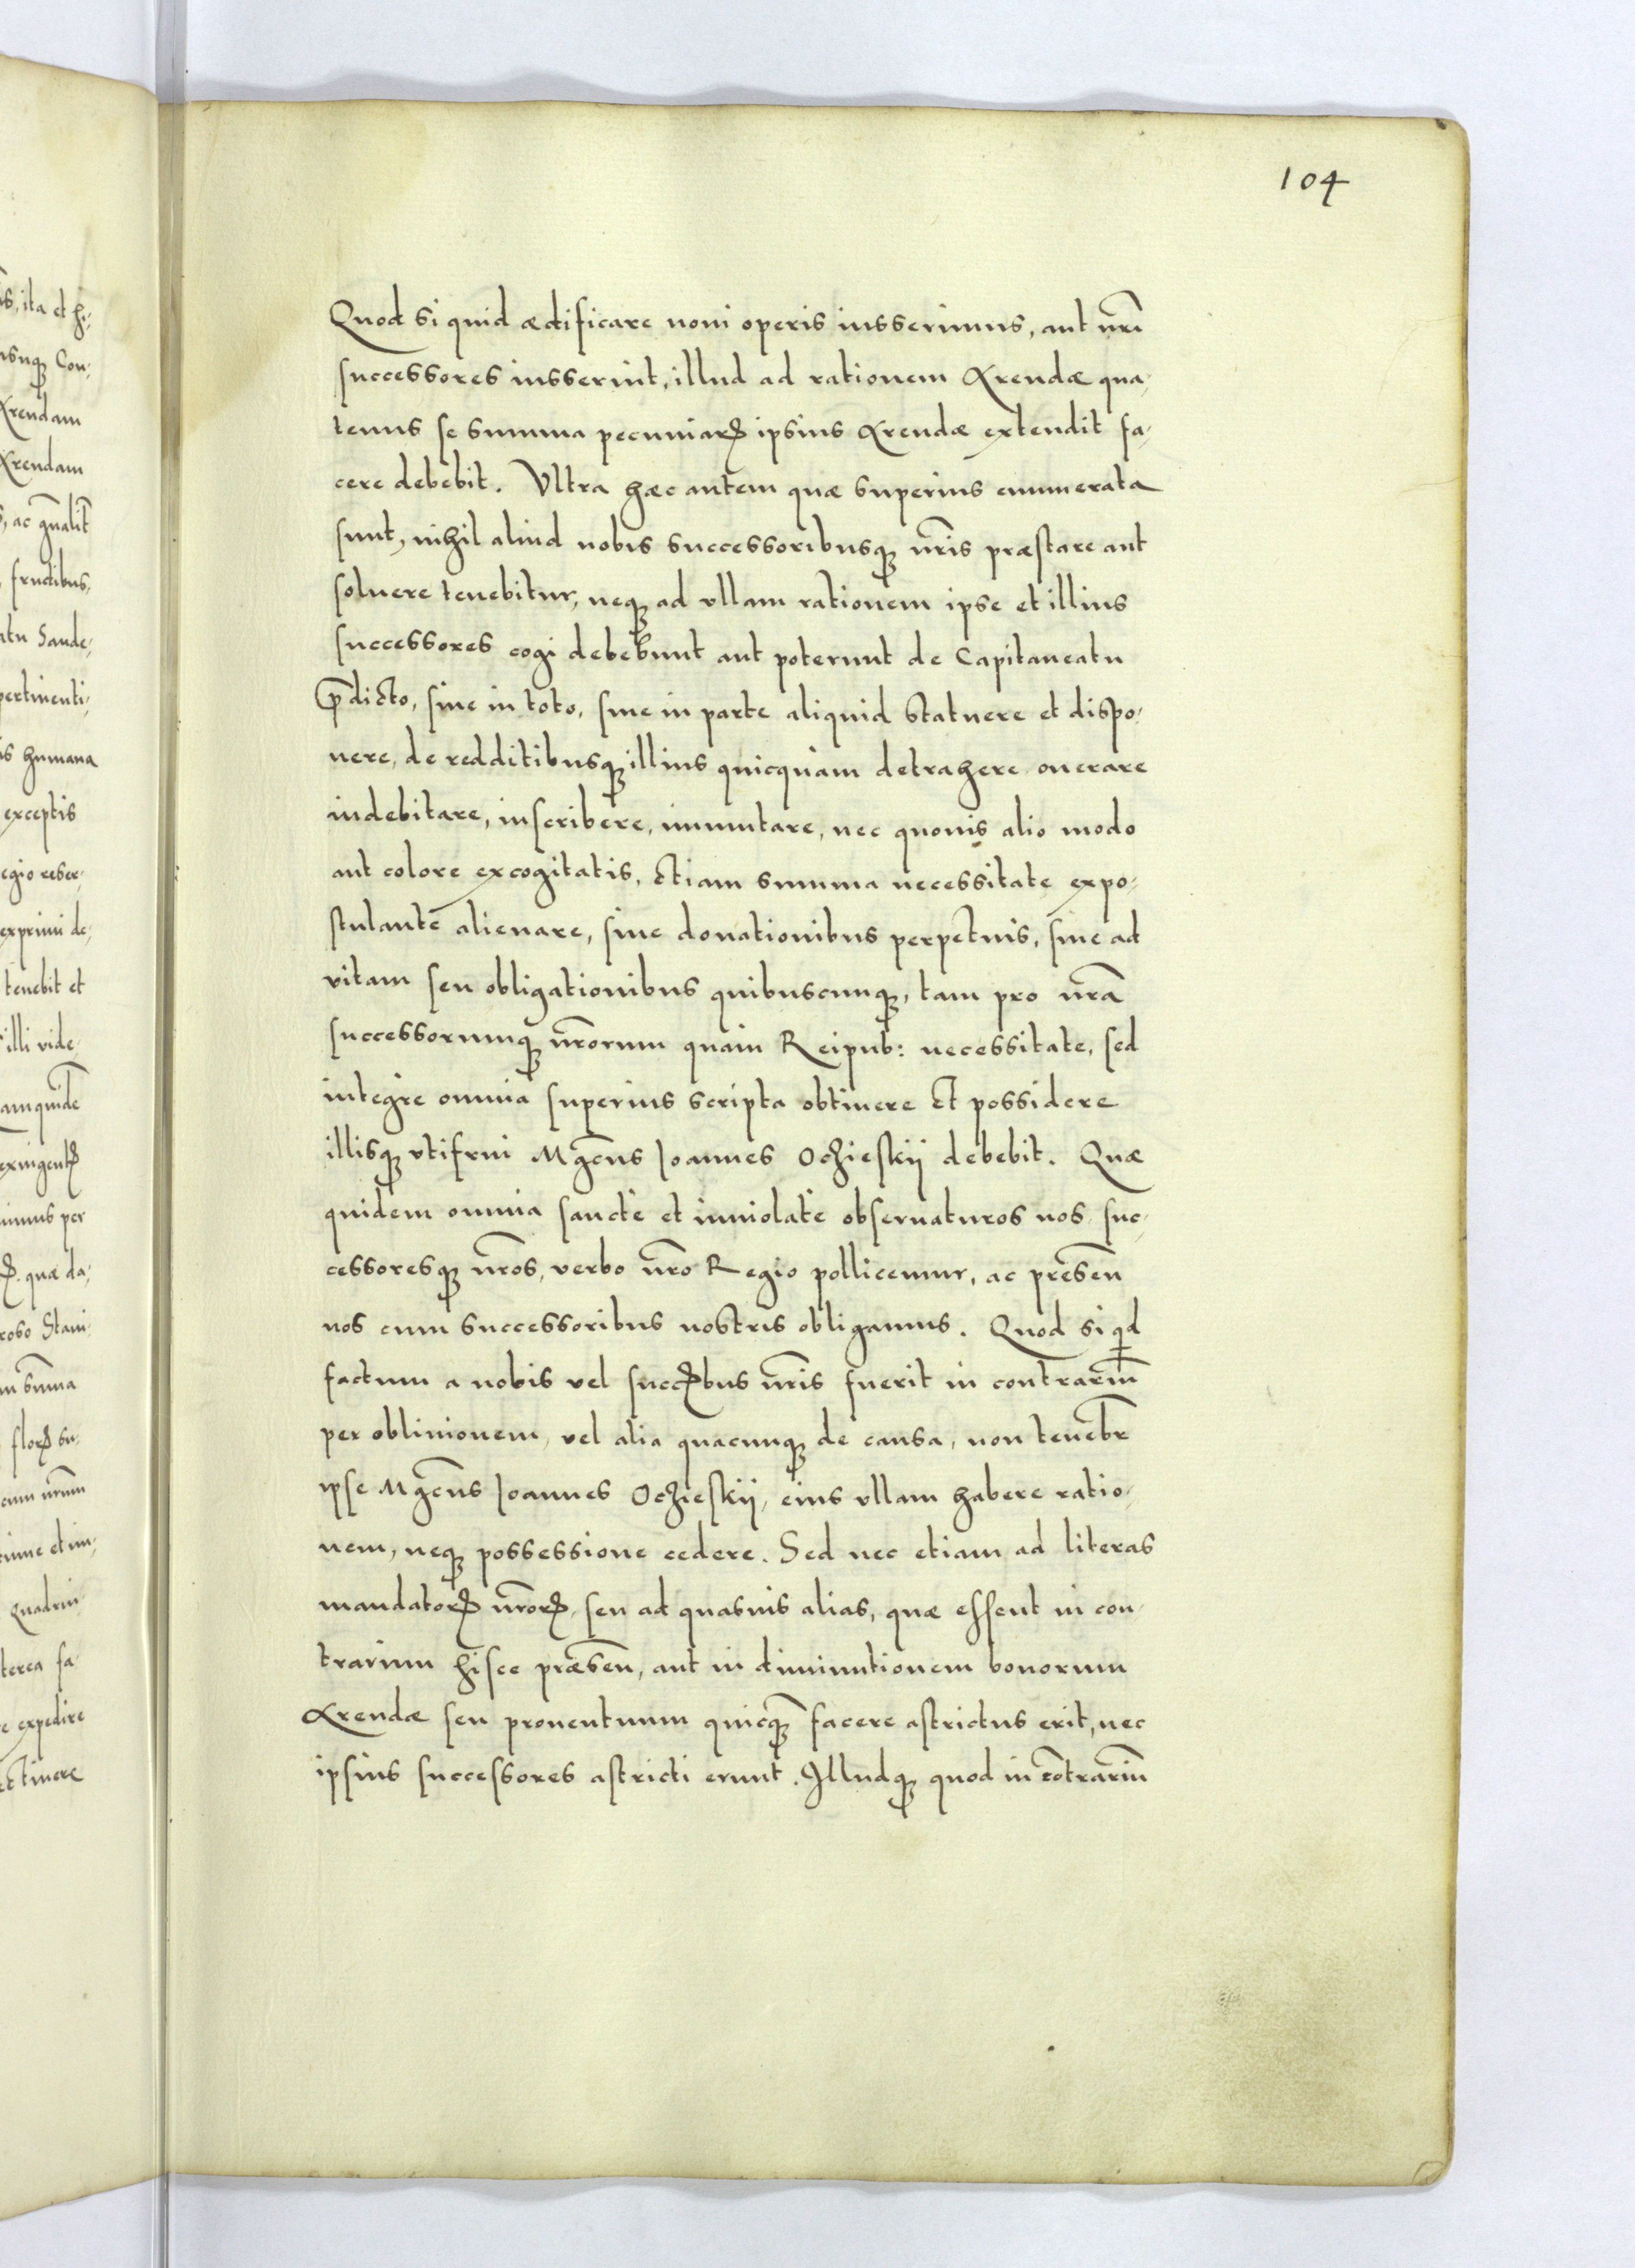 104
Quod si quid ædificare noui operis iusserimus, aut nr̃i
successores iusserint, illud ad rationem Arendæ qua-
tenus se summa pecuniarꝝ ipsius Arendæ extendit fa-
cere debebit. Vltra hæc autem quæ superius enumerata
sunt, nihil aliud nobis successoribusqꝫ nr̃is præstare aut
soluere tenebitur, neqꝫ ad vllam rationem ipse et illius
successores cogi debebunt aut poterunt de Capitaneatu
p̃dicto, siue in toto, siue in parte aliquid statuere et dispo-
nere, de redditibusqꝫ illius quicquam detrahere, onerare
indebitare, inscribere, inmutare, nec quouis alio modo
aut colore excogitatis, etiam summa necessitate expo-
stulante alienare, siue donationibus perpetuis, siue ad
vitam seu obligationibus quibuscunqꝫ, tam pro nr̃a
successorumqꝫ nr̃orum quam Reipub: necessitate, sed
integre omnia superius scripta obtinere et possidere
illisqꝫ vtifrui Mg̃cus Ioannes Oczieskij debebit. Quæ
quidem omnia sancte et inuiolate obseruaturos nos suc-
cessoresqꝫ nr̃os, verbo nr̃o Regio pollicemur, ac præsen̄
nos cum successoribus nostris obligamus. Quod si qͥd
factum a nobis vel succꝝbus nr̃is fuerit in contrariū
per obliuionem, vel alia quacunqꝫ de causa, non teneb̃r
ipse Mg̃cus Ioannes Oczieskij, eius vllam habere ratio-
nem, neqꝫ possessione cedere. Sed nec etiam ad literas
mandatorꝝ nr̃orꝝ, seu ad quasuis alias, quæ essent in con-
trarium hisce præsen̄, aut in diminutionem bonorum
Arendæ seu prouentuum quicqꝫ̃ facere astrictus erit, nec
ipsius successores astricti erunt. Illudqꝫ quod in cõtrariū